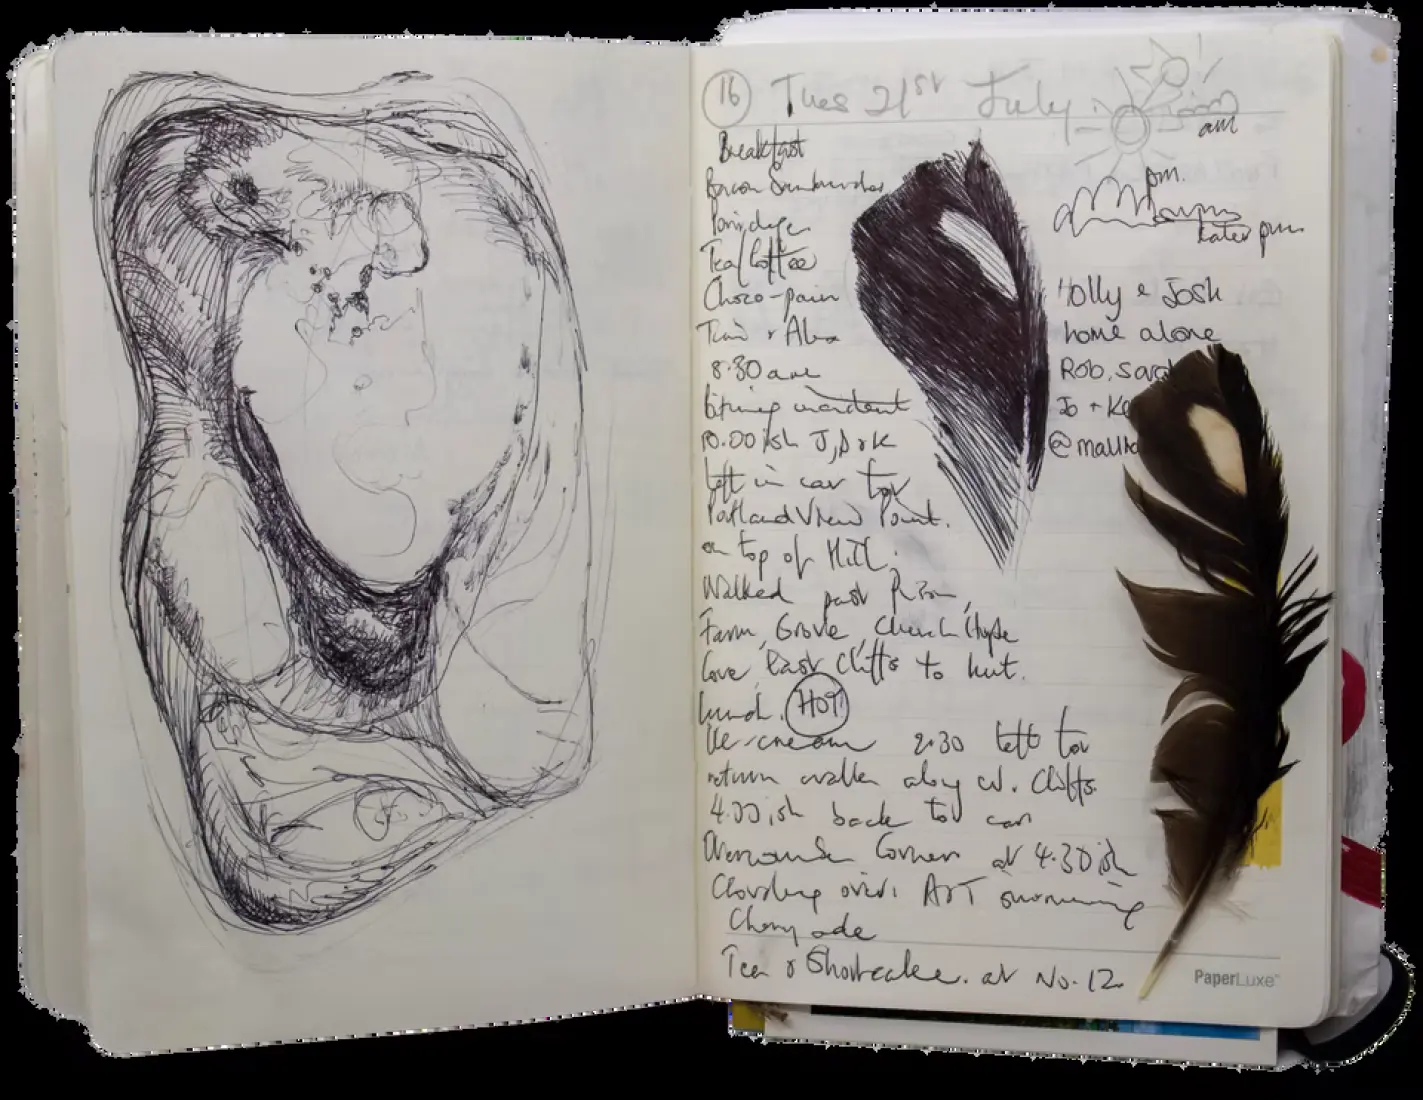 16 Tues 21st July
am
pm.
Later pm
Breakfast
Bacon Sandwiches
Porridge
Tea/Coffee
Choco-pain
8.30 am
10.00ish J, D & K
left in car for
Portland View Point.
on top of Hill.
Walked past Prison,
Farm, Grove, Church Hope
Cove, East Cliffs to hut.
Lunch. HOT
Ice-cream 2.30 left for
return walk along W. Cliffs
4.00ish back to car
Corner at 4.30ish
Clouding over. ART
Cherryade
Tea & Shortcake. at No. 12.
Holly & Josh
home alone
Rob, Sarah
Jo + Ke
PaperLuxe™